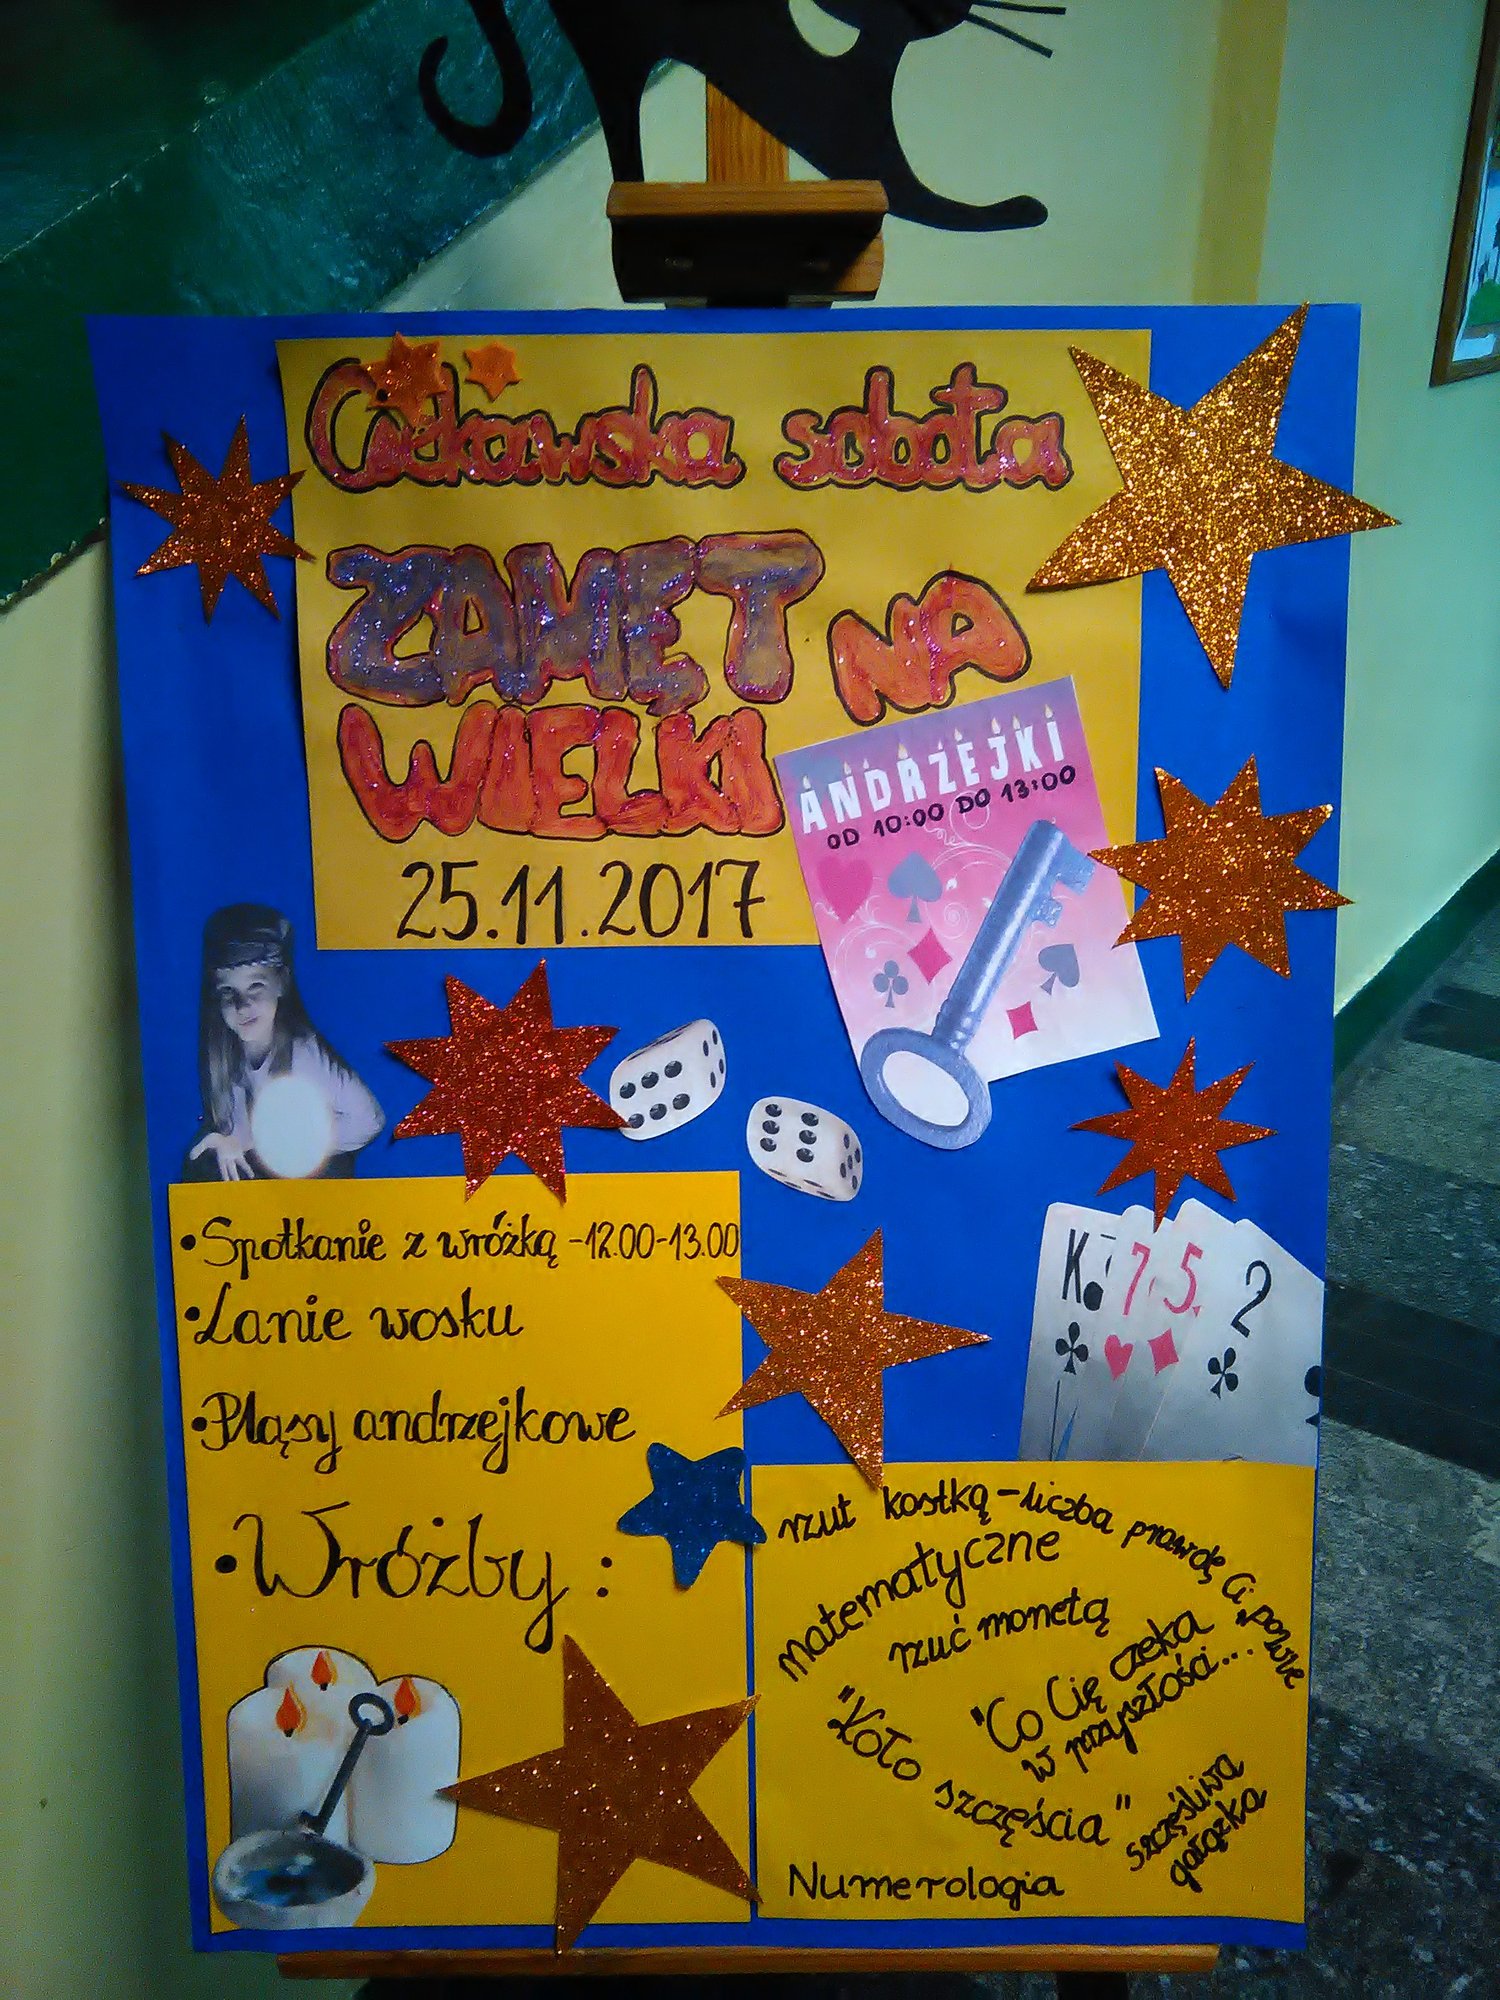 sobota
ZAMĘT NA
WIELKI
ANDRZEJKI
OD 10:00 DO 13:00
25.11.2017
•Spotkanie z wróżką -12.00-13.00
•Lanie wosku
•Pląsy andrzejkowe
•Wróżby :
K 7 5 2
rzut kostką-liczba prawdę Ci powie
matematyczne
rzuć monetą
"Co Cię czeka
w przyszłości...
"Koło szczęścia"
szczęśliwa
gałązka
Numerologia